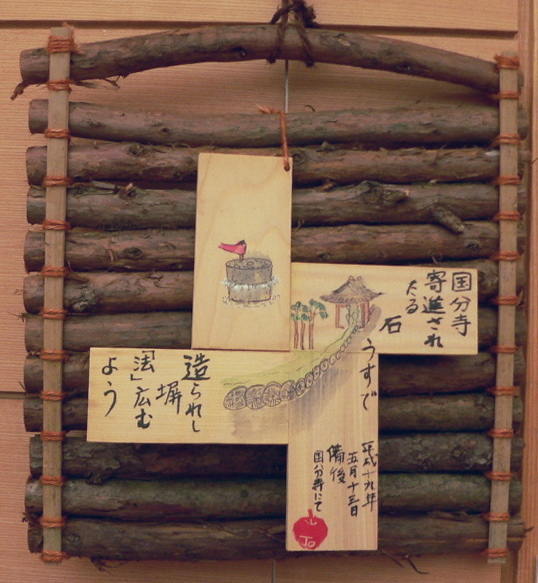 国分寺
寄進され
たる
石
うすで
造られし
塀
「法」広む
よう
平成十九年
五月十三日
備後
国分寺にて
Jo